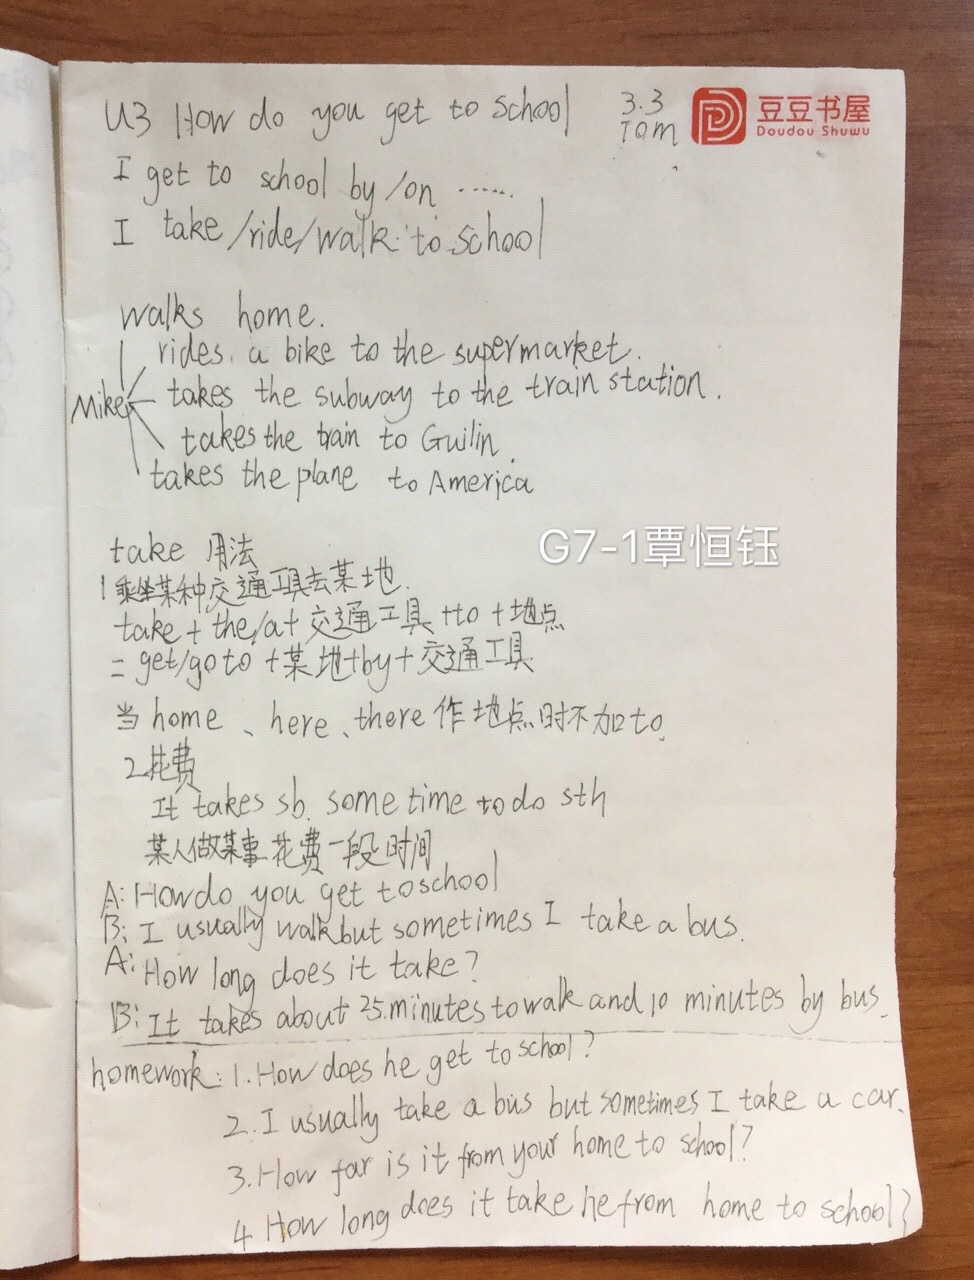 U3 How do you get to school
3.3
Tom
豆豆书屋
Doudou Shuwu
I get to school by/on ......
I take/ride/walk to school
walks home.
rides a bike to the supermarket.
Mike
takes the subway to the train station.
takes the train to Guilin.
takes the plane to America
G7-1覃恒钰
take 用法
1 乘坐某种交通工具去某地.
take + the/a + 交通工具 + to + 地点
= get/go to + 某地 + by + 交通工具
当 home、here、there 作地点时不加to.
2 花费
It takes sb. some time to do sth
某人做某事花费一段时间
A: How do you get to school
B: I usually walk but sometimes I take a bus.
A: How long does it take?
B: It takes about 25 minutes to walk and 10 minutes by bus.
homework: 1. How does he get to school?
2. I usually take a bus but sometimes I take a car.
3. How far is it from your home to school?
4. How long does it take he from home to school?